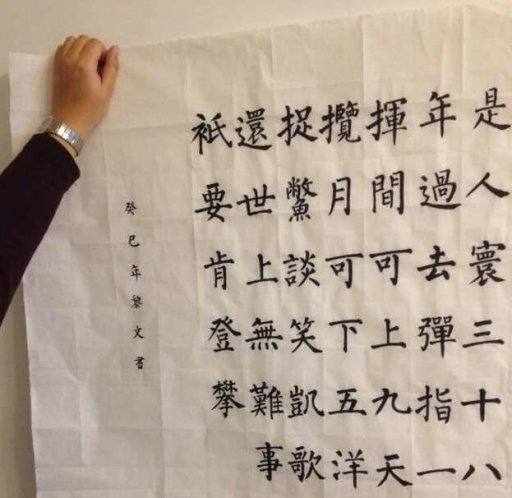 是人寰三十八
年過去彈指一
揮間可上九天
攬月可下五洋
捉鱉談笑凱歌
還世上無難事
衹要肯登攀
癸巳年黎文書